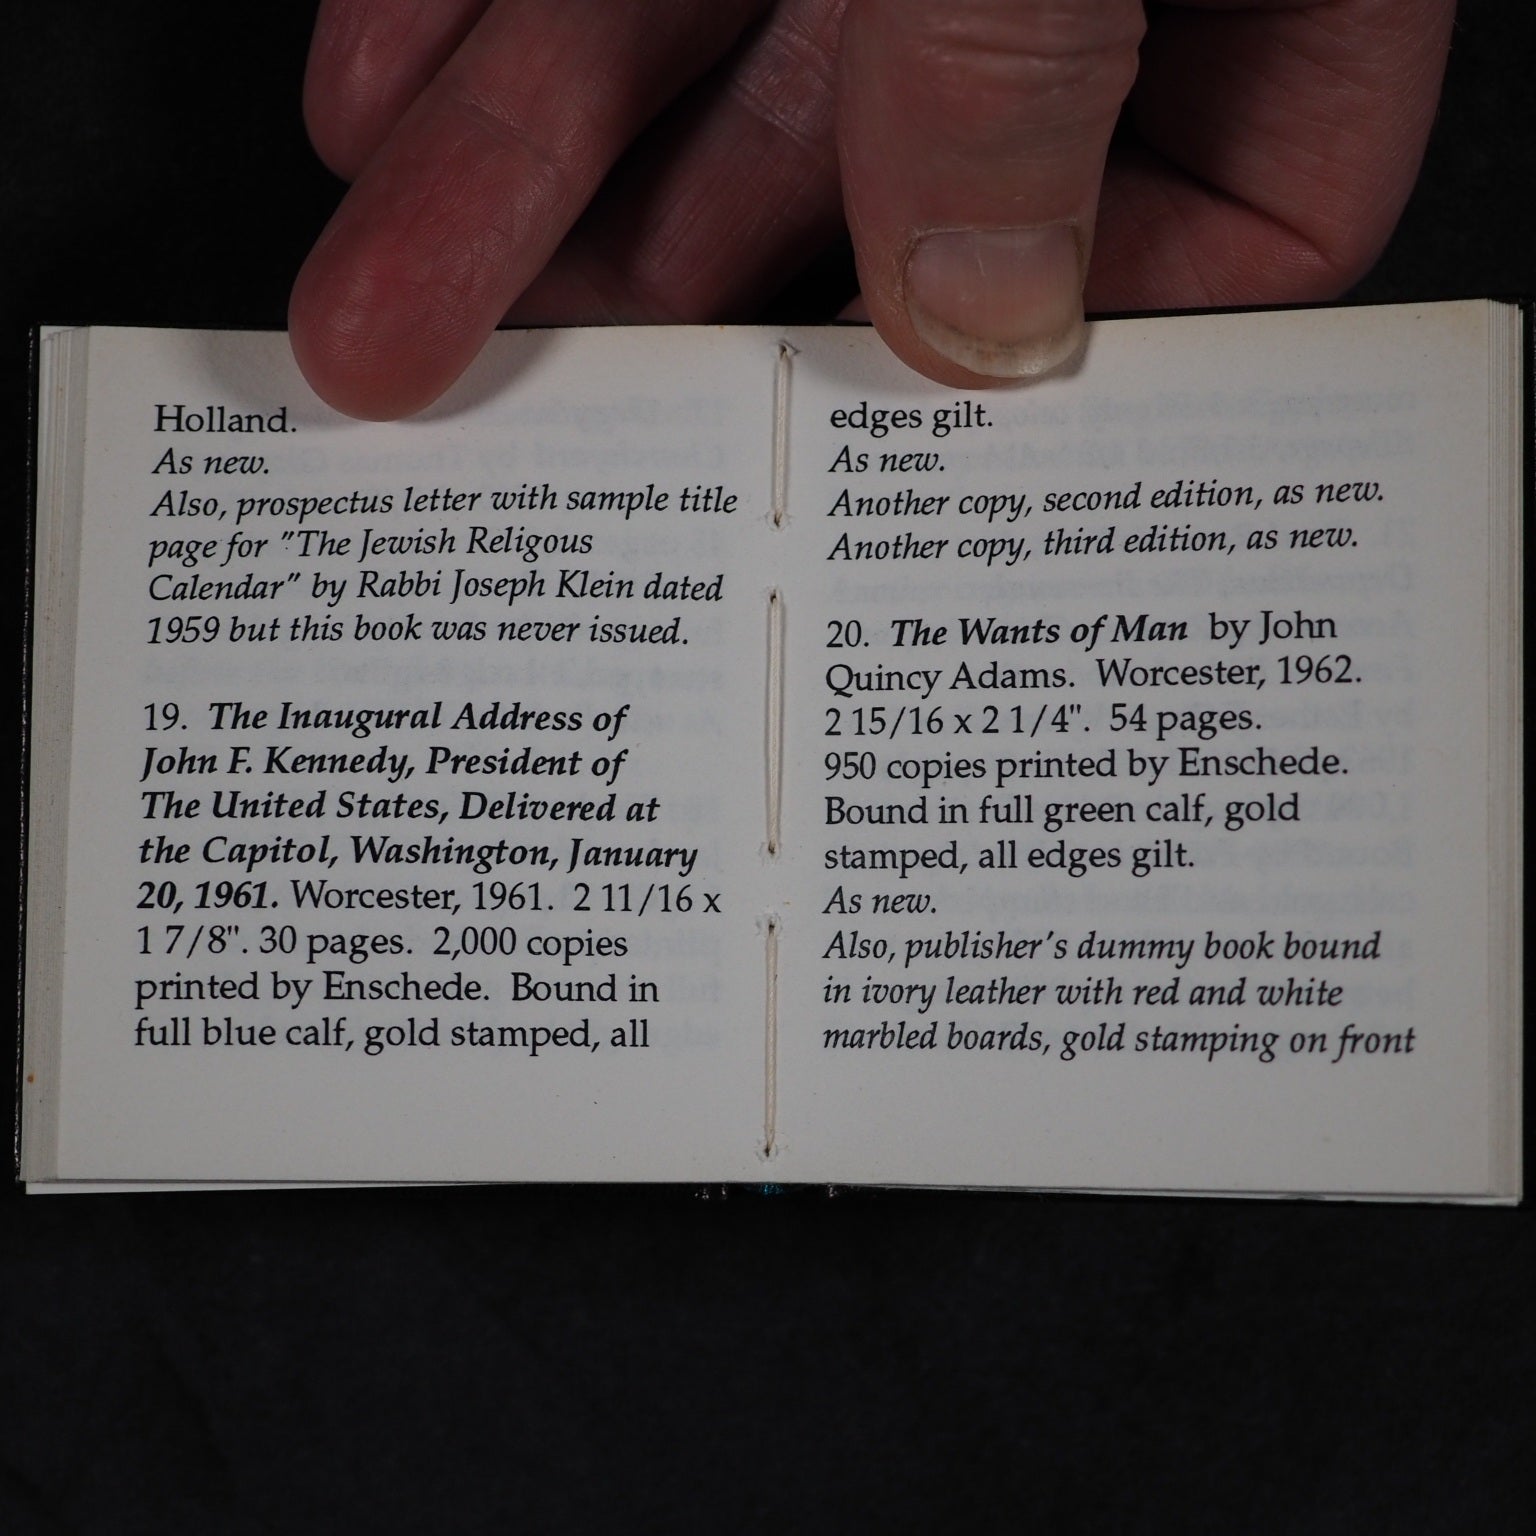 Holland.
As new.
Also, prospectus letter with sample title
page for "The Jewish Religous
Calendar" by Rabbi Joseph Klein dated
1959 but this book was never issued.
19. The Inaugural Address of
John F. Kennedy, President of
The United States, Delivered at
the Capitol, Washington, January
20, 1961. Worcester, 1961. 2 11/16 x
1 7/8". 30 pages. 2,000 copies
printed by Enschede. Bound in
full blue calf, gold stamped, all
edges gilt.
As new.
Another copy, second edition, as new.
Another copy, third edition, as new.
20. The Wants of Man by John
Quincy Adams. Worcester, 1962.
2 15/16 x 2 1/4". 54 pages.
950 copies printed by Enschede.
Bound in full green calf, gold
stamped, all edges gilt.
As new.
Also, publisher's dummy book bound
in ivory leather with red and white
marbled boards, gold stamping on front